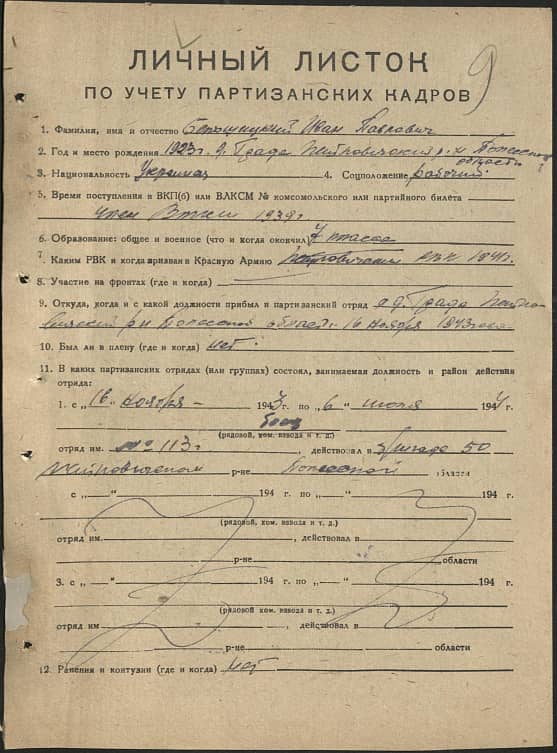 9
ЛИЧНЫЙ ЛИСТОК
ПО УЧЕТУ ПАРТИЗАНСКИХ КАДРОВ
1. Фамилия, имя и отчество Иван Павлович
2. Год и место рождения 1923 г. д.Града
области
3. Национальность Украинец 4. Соцположение рабочий
5. Время поступления в ВКП(б) или ВЛКСМ № комсомольского или партийного билета
член 1939 г
6. Образование: общее и военное (что и когда окончил) 7 класса
7. Каким РВК и когда призван в Красную Армию РВК 1941 г.
8. Участие на фронтах (где и когда)
9. Откуда, когда и с какой должности прибыл в партизанский отряд д. Града
р-н Полесской 16 ноября 1943 года
10. Был ли в плену (где и когда) нет
11. В каких партизанских отрядах (или группах) состоял, занимаемая должность и район действия
отряда:
1. с „16“ ноября 1943 г. по „6“ июля 1944 г.
боец
(рядовой, ком. взвода и т. д.)
отряд им. № 113 , действовал в бригаде 50
р-не Полесской области
с „ “ 194 г. по „ “ 194 г.
(рядовой, ком. взвода и т. д.)
отряд им. , действовал в
р-не области
3. с „ “ 194 г. по „ “ 194 г.
(рядовой ком. взвода и т. д.)
отряд им , действовал в
р-не области
12. Ранения и контузии (где и когда) нет